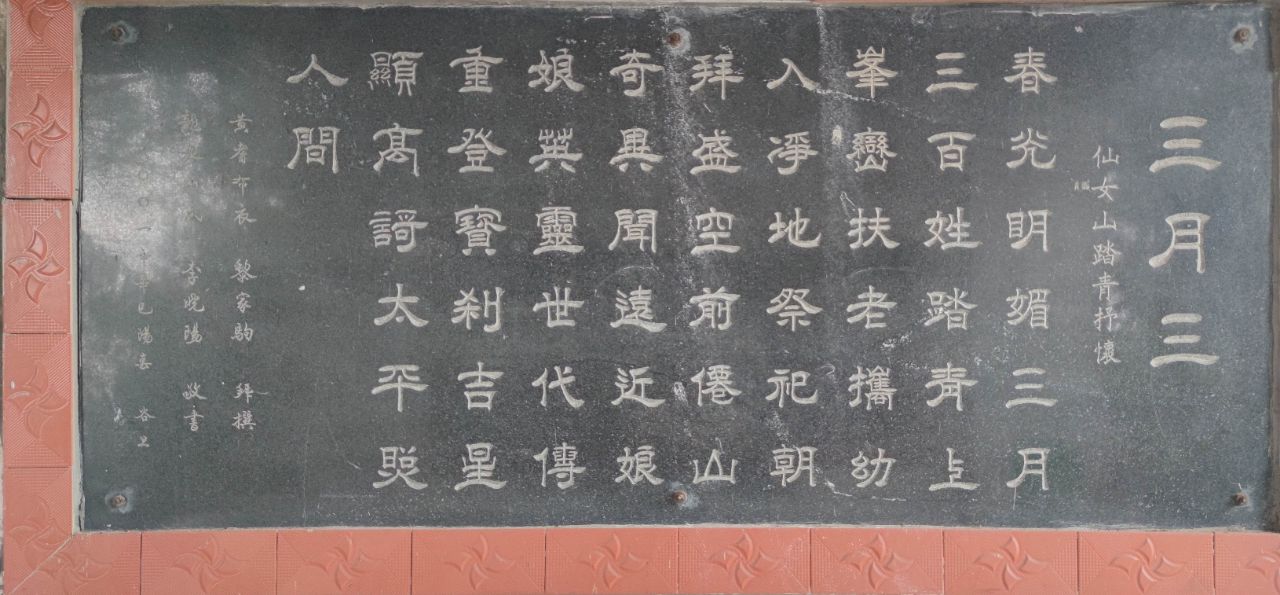 三月三
仙女山踏青抒懷
春光明媚三月
三百姓踏青上
峯巒扶老攜幼
入淨地祭祀朝
拜盛空前僊山
奇異聞遠近娘
娘英靈世代傳
重登寶刹吉星
顯高謌太平照
人間
黃睿布衣 黎家駒 拜撰
李曉陽 敬書